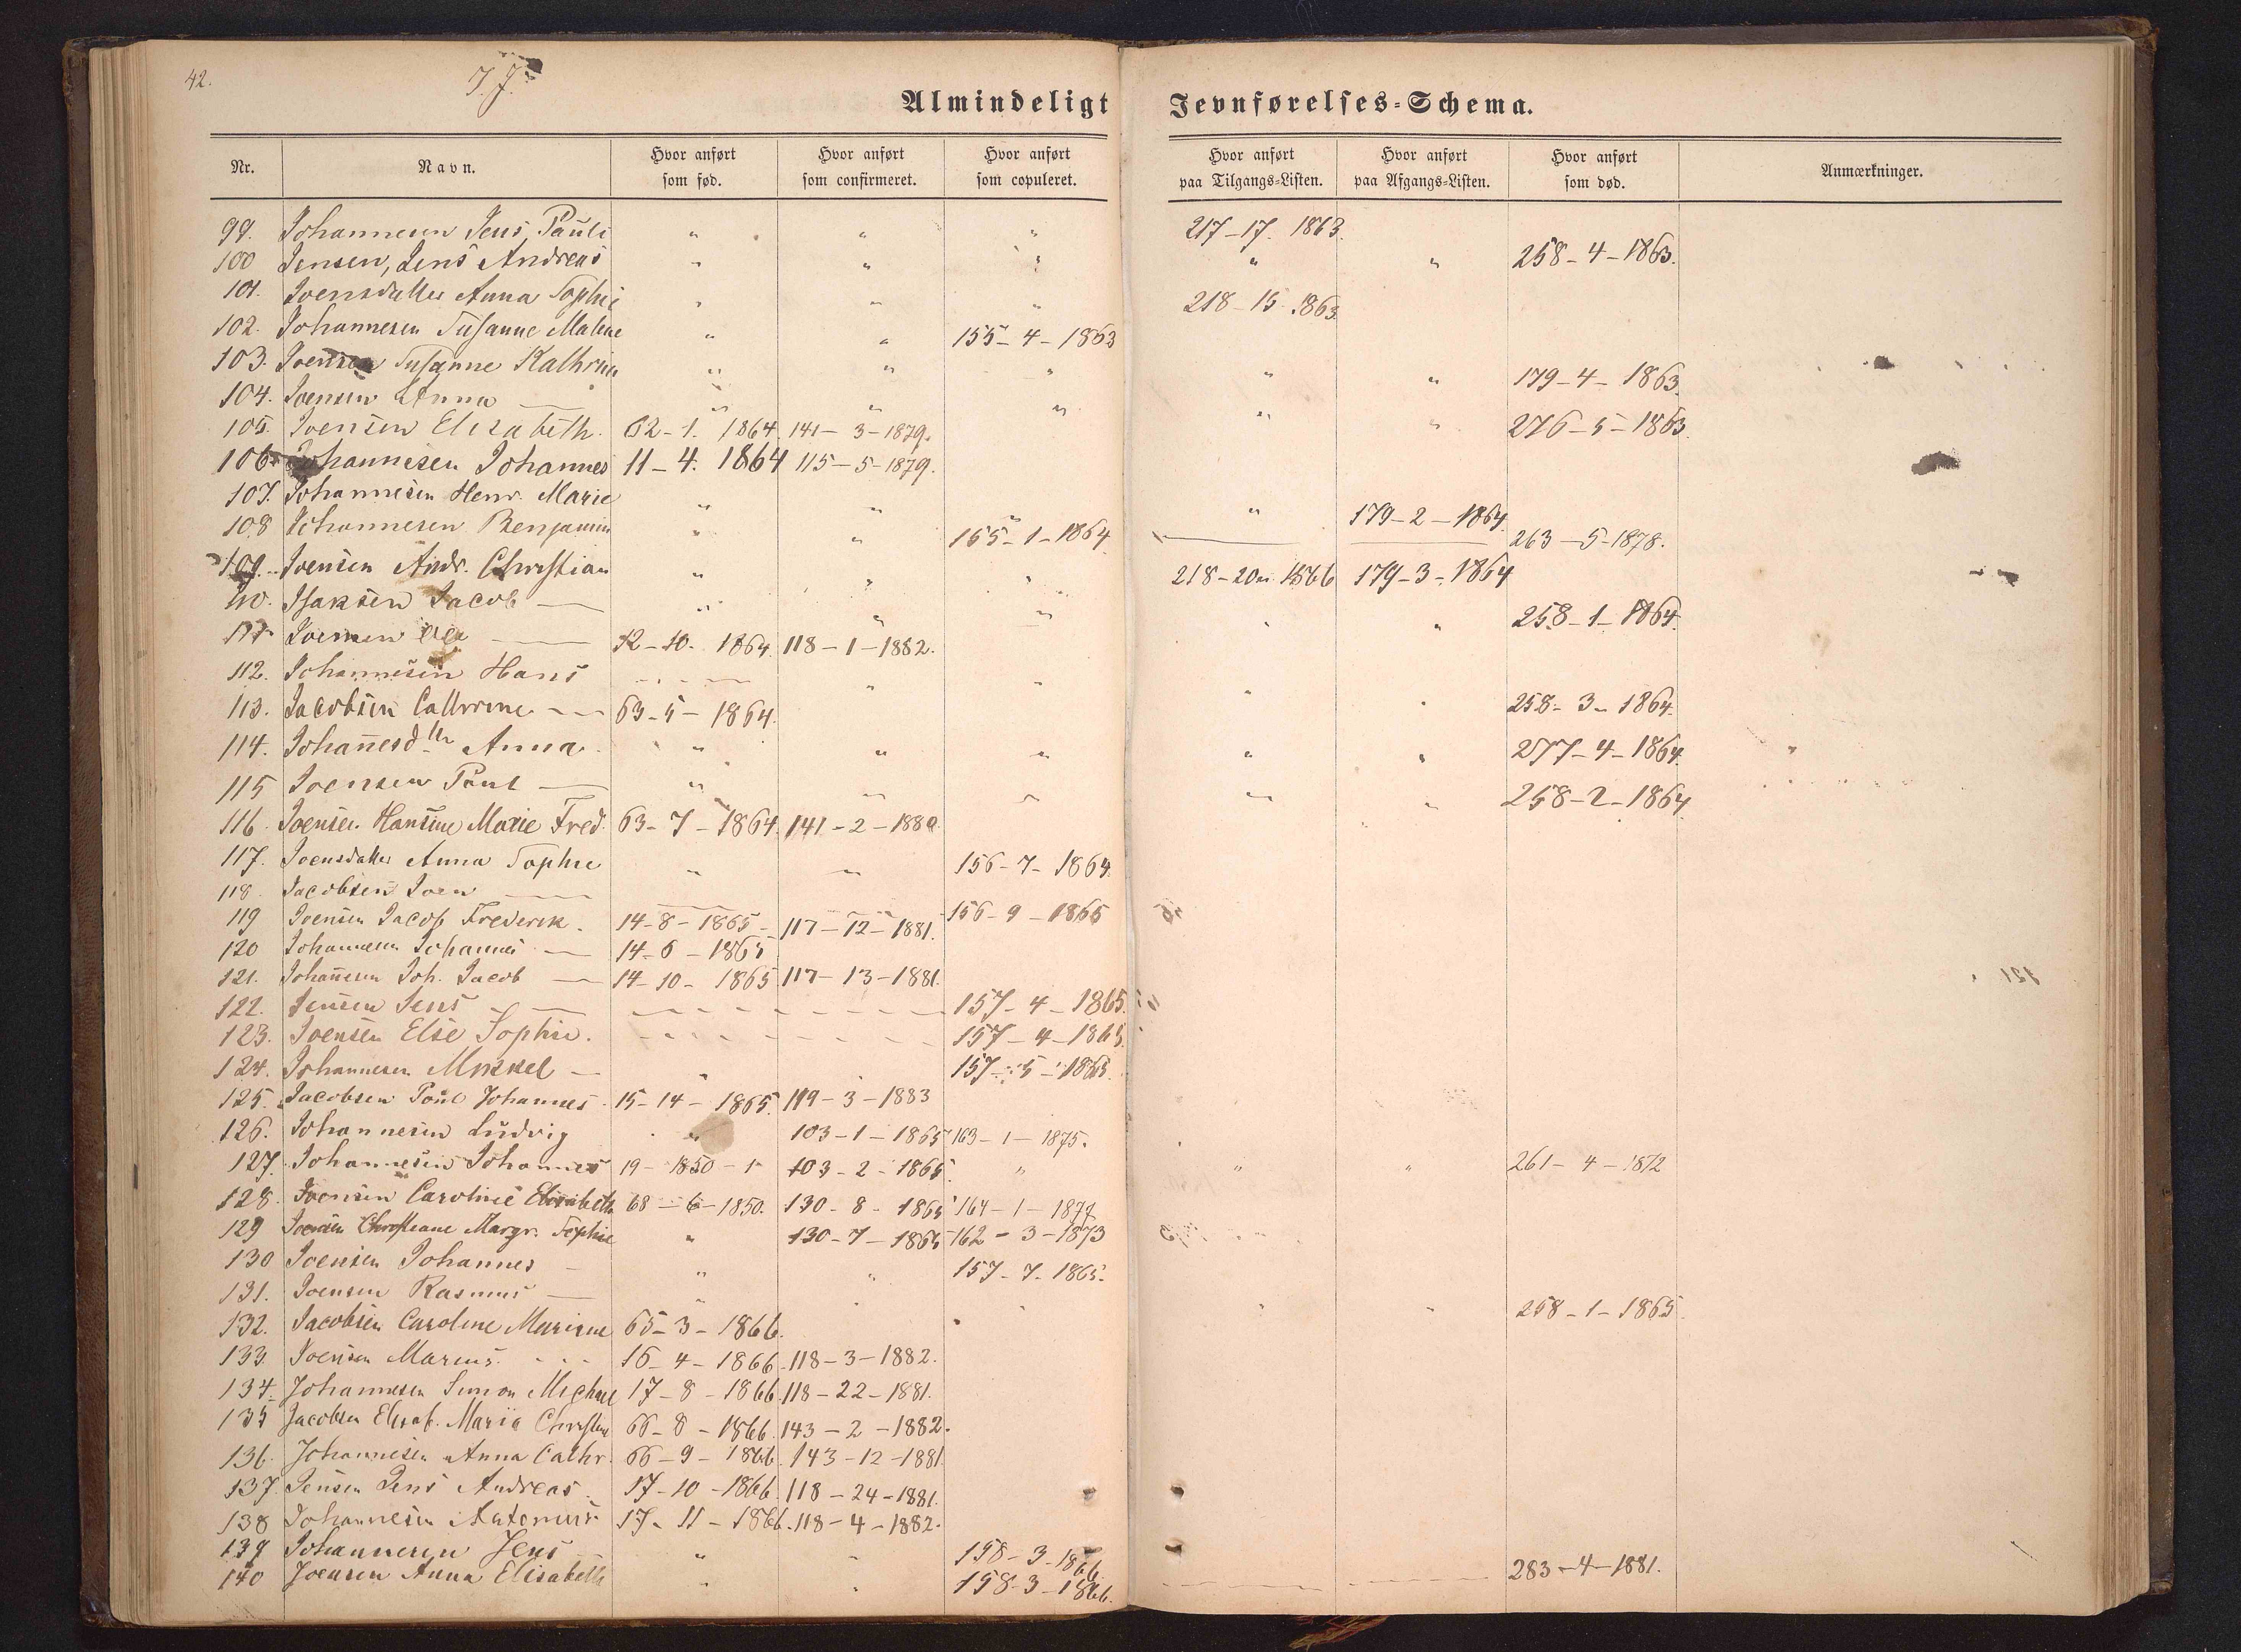 42.
J. J.
Almindeligt Jevnførelses-Schema.
Nr. Navn. Hvor anført som fød. Hvor anført som confirmeret. Hvor anført som copuleret. Hvor anført paa Tilgangs-Listen. Hvor anført paa Afgangs-Listen. Hvor anført som død. Anmærkninger.
99. Johannesen Jens Pauli " " " 217-17. 1863.
100 Jensen, Jens Andreas " " " " " 258-4-1863.
101. Joensdatter Anna Sophie " " " 218-15-1863.
102. Johannesen Susanne Malene " " 155-4-1863
103. Joensen Susanne Kathrine " " " " " 179-4-1863.
104. Joensen Anna — " " " " " 276-5-1863.
105. Joensen Elisabeth. 62-1. 1864. 141-3-1879.
106. Johannesen Johannes 11-4. 1864 115-5-1879.
107. Johannesen Henr. Marie " " " " 179-2-1864.
108 Johannesen Benjamin " " 155-1-1864. — — 263-5-1878.
109. Joensen Andr. Christian " " " 218-20 1866 179-3-1864
110. Isaksen Jacob — " " " " " 258-1-1864.
111. Joensen — 12-10. 1864. 118-1-1882.
112. Johannesen Hans " " " " 258-3-1864.
113. Jacobsen Cathrine — 63-5-1864.
114. Johan̄esdtr Anna " " " " " 277-4-1864.
115 Joensen Poul — " " " " " 258-2-1864.
116. Joensen Hansine Marie Fred. 63-7-1864. 141-2-1880.
117. Joensdatter Anna Sophie " " 156-7-1864.
118. Jacobsen Joen — — — 156-9-1865
119 Joensen Jacob Frederik. 14-8-1865- 117-12-1881.
120 Johannesen Johannes — 14-6-1865
121. Johan̄esen Joh. Jacob — 14-10-1865 117-13-1881.
122. Jensen Jens — 157-4-1865.
123. Joensen Else Sophie. 157-4-1865.
124. Johannesen Mikkel — " " 157-5-1865.
125. Jacobsen Poul Johannes. 15-14-1865. 119-3-1883
126. Johannesen Ludvig " 103-1-1865 163-1-1875.
127. Johannesen Johannes 19-1850-1 103-2-1865. " " " 261-4-1872
128. Joensen Caroline Elisabeth 68-6-1850. 130-8-1865 164-1-1877
129 Joensen Christiane Margr. Sophie " 130-7-1865 162-3-1873
130 Joensen Johannes — " " 157-7-1865.
131. Joensen Rasmus — " " " " " 258-1-1865.
132. Jacobsen Caroline Mariane 65-3-1866.
133. Joensen Marius. 16-4-1866. 118-3-1882.
134. Johannesen Simon Michael 17-8-1866. 118-22-1881.
135 Jacobsen Elisab. Maria Christine 66-8-1866. 143-2-1882.
136. Johannesen Anna Cathr. 66-9-1866. 143-12-1881.
137. Jensen Jens Andreas. 17-10-1866. 118-24-1881.
138 Johannesen Antonius 17-11-1866. 118-4-1882.
139 Johannesen Jens " " 158-3-1866.
140 Joensen Anna Elisabeth " " 158-3-1866. — — 283-4-1881.